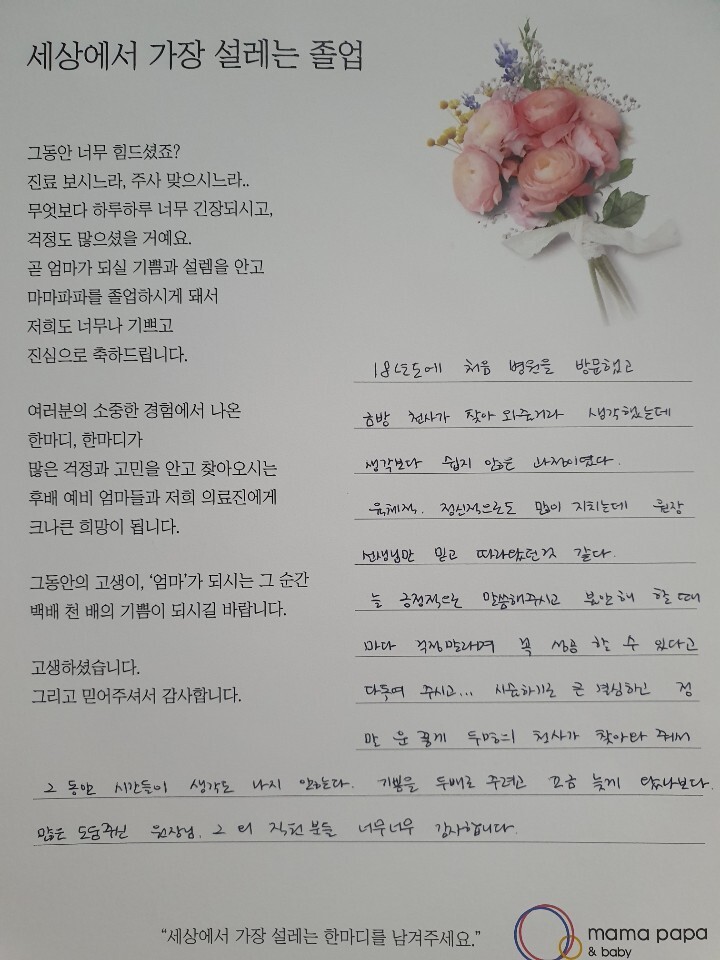 세상에서 가장 설레는 졸업
그동안 너무 힘드셨죠?
진료 보시느라, 주사 맞으시느라..
무엇보다 하루하루 너무 긴장되시고,
걱정도 많으셨을 거예요.
곧 엄마가 되실 기쁨과 설렘을 안고
마마파파를 졸업하시게 돼서
저희도 너무나 기쁘고
진심으로 축하드립니다.
여러분의 소중한 경험에서 나온
한마디, 한마디가
많은 걱정과 고민을 안고 찾아오시는
후배 예비 엄마들과 저희 의료진에게
크나큰 희망이 됩니다.
그동안의 고생이, '엄마'가 되시는 그 순간
백배 천 배의 기쁨이 되시길 바랍니다.
고생하셨습니다.
그리고 믿어주셔서 감사합니다.
18년도에 처음 병원을 방문했고
금방 천사가 찾아 와주거라 생각했는데
생각보다 쉽지 않은 과정이였다.
육체적. 정신적으로도 많이 지치는데 원장
선생님만 믿고 따라왔던것 같다.
늘 긍정적으로 말씀해주시고 불안해 할 때
마다 걱정말라며 꼭 성공 할 수 있다고
다독여 주시고... 시술하기로 큰 결심하고 정
말 운 좋게 두명의 천사가 찾아와 줘서
그 동안 시간들이 생각도 나지 않는다. 기쁨을 두배로 주려고 조금 늦게 왔나보다.
많은 도움주신 원장님. 그 외 직원분들 너무너무 감사합니다.
"세상에서 가장 설레는 한마디를 남겨주세요."
mama papa
& baby